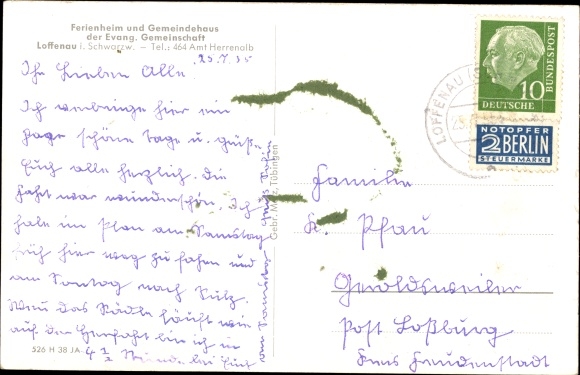 Ferienheim und Gemeindehaus
der Evang. Gemeinschaft
Loffenau i. Schwarzw. – Tel.: 464 Amt Herrenalb
25.7.55
Ihr Lieben Alle
Ich verbringe hier ein
paar schöne Tage u. grüße
Euch alle herzlich. Die
Fahrt war wunderschön. Ich
habe im Plan am Samstag
früh hier weg zu fahren und
am Sonntag nach Sulz.
Wenn das Rädle läuft wie
auf der Herfahrt bin ich in
4 1/2 Stunden bei Euch
am Samstag
526 H 38 JA
Gebr. Metz, Tübingen
LOFFENAU
10
DEUTSCHE
BUNDESPOST
NOTOPFER
2 BERLIN
STEUERMARKE
Familie
Pfau
Geroldsweiler
Post Loßburg
Kreis Freudenstadt